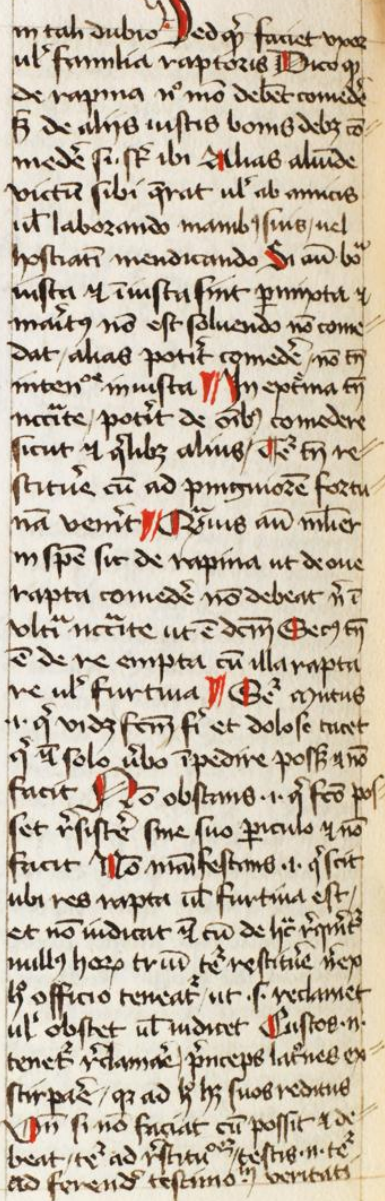 in tali dubio Sed qͥ faciet vxor
ul' familia raptoris Dico qꝫ
de rapina nͦ mͦo debēt comedē
sꝫ de aliis iustis bonis debꝫ cō
medē si sͭ ibi Alias aliūde
victū sibi q̄rat ul' ab amicis
ul' laborando manibꝰ suis / uel
hostiatī mendicando Si aūt boͣ
iusta ⁊ īiusta sint ꝑmixta ⁊
maritꝰ nō est soluendo nō come
dat / alias potit̄ comedē / nō tn̄
intenͦe iniusta In extͥma tn̄
nccͥate / potit̄ de oīibꝫ comedere
sicut ⁊ qͥlibꝫ alius / Teͬ tn̄ re
stituē cū ad pinguiorē fortu
nā venīt Qͣuis aūt mlͥer
in spē sic de rapina ut de oue
rapta comedē nō debeat nͥ ī
vltīa nccͥate ut ē dc̄m Secꝰ tn̄
ē de re empta cū illa rapta
re ul' furtiua Teͬ mutus
.i. qͥ vidꝫ fc̄m fiͥ et dolose tacet
qͥ solo ūbo īpedire possꝫ ⁊ nō
facit Nō obstans .i. qͥ fcͦo pos
set rͤsistē sine suo ꝑiculo ⁊ nō
facit Nō maīfestans .i. qͥ scit
ubi res rapta ul' furtiua est /
et nō indicat cū de hͦc rͤqͥrit̄
nullꝰ horꝫ triū teͬ restituē nͥ ex
hͦ officio teneatͬ / ut .s. reclamet
ul' obstet ul' indicet Custos .n.
tenetͬ rͤclamaē / pͥnceps latͦnes ex
stirpaē / qꝛ ad hͦ hꝫ suos reditus
Vn̄ si nō faciat cū possit ⁊ de
beat / teͬ ad rͤstitutͦeꝫ / testis .n. teͬ
ad ferendꝫ testimoͥuꝫ veritati